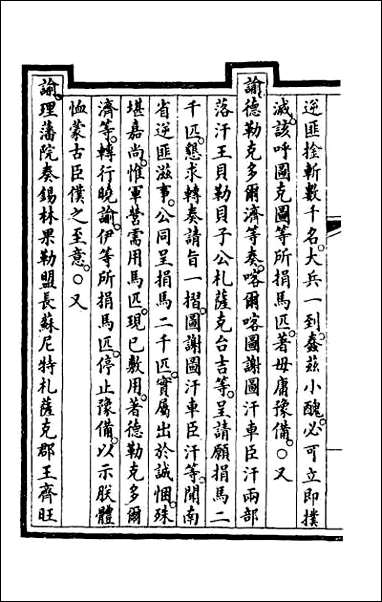 逆匪捦斬數千名。大兵一到。蠢茲小醜。必可立即撲
滅。該呼圖克圖等所捐馬匹。著毋庸豫備。○又
諭。德勒克多爾濟等奏。喀爾喀圖謝圖汗車臣汗兩部
落汗王貝勒貝子公札薩克台吉等。呈請願捐馬二
千匹。懇求轉奏請旨一摺。圖謝圖汗車臣汗等。聞南
省逆匪滋事。公同呈捐馬二千匹。實屬出於誠悃。殊
堪嘉尚。惟軍營需用馬匹。現已敷用。著德勒克多爾
濟等。轉行曉諭。伊等所捐馬匹。停止豫備。以示朕體
恤蒙古臣僕之至意。○又
諭。理藩院奏錫林果勒盟長蘇尼特札薩克郡王齊旺